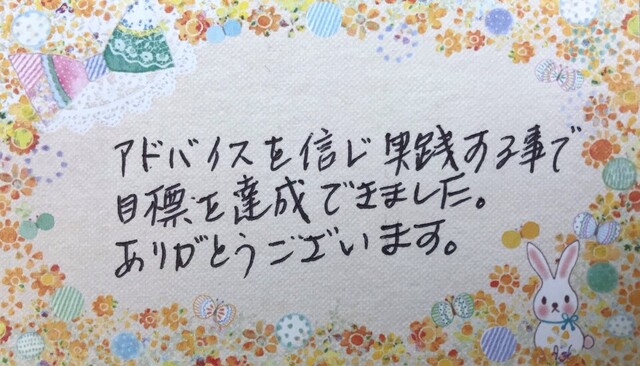 アドバイスを信じ実践する事で
目標を達成できました。
ありがとうございます。